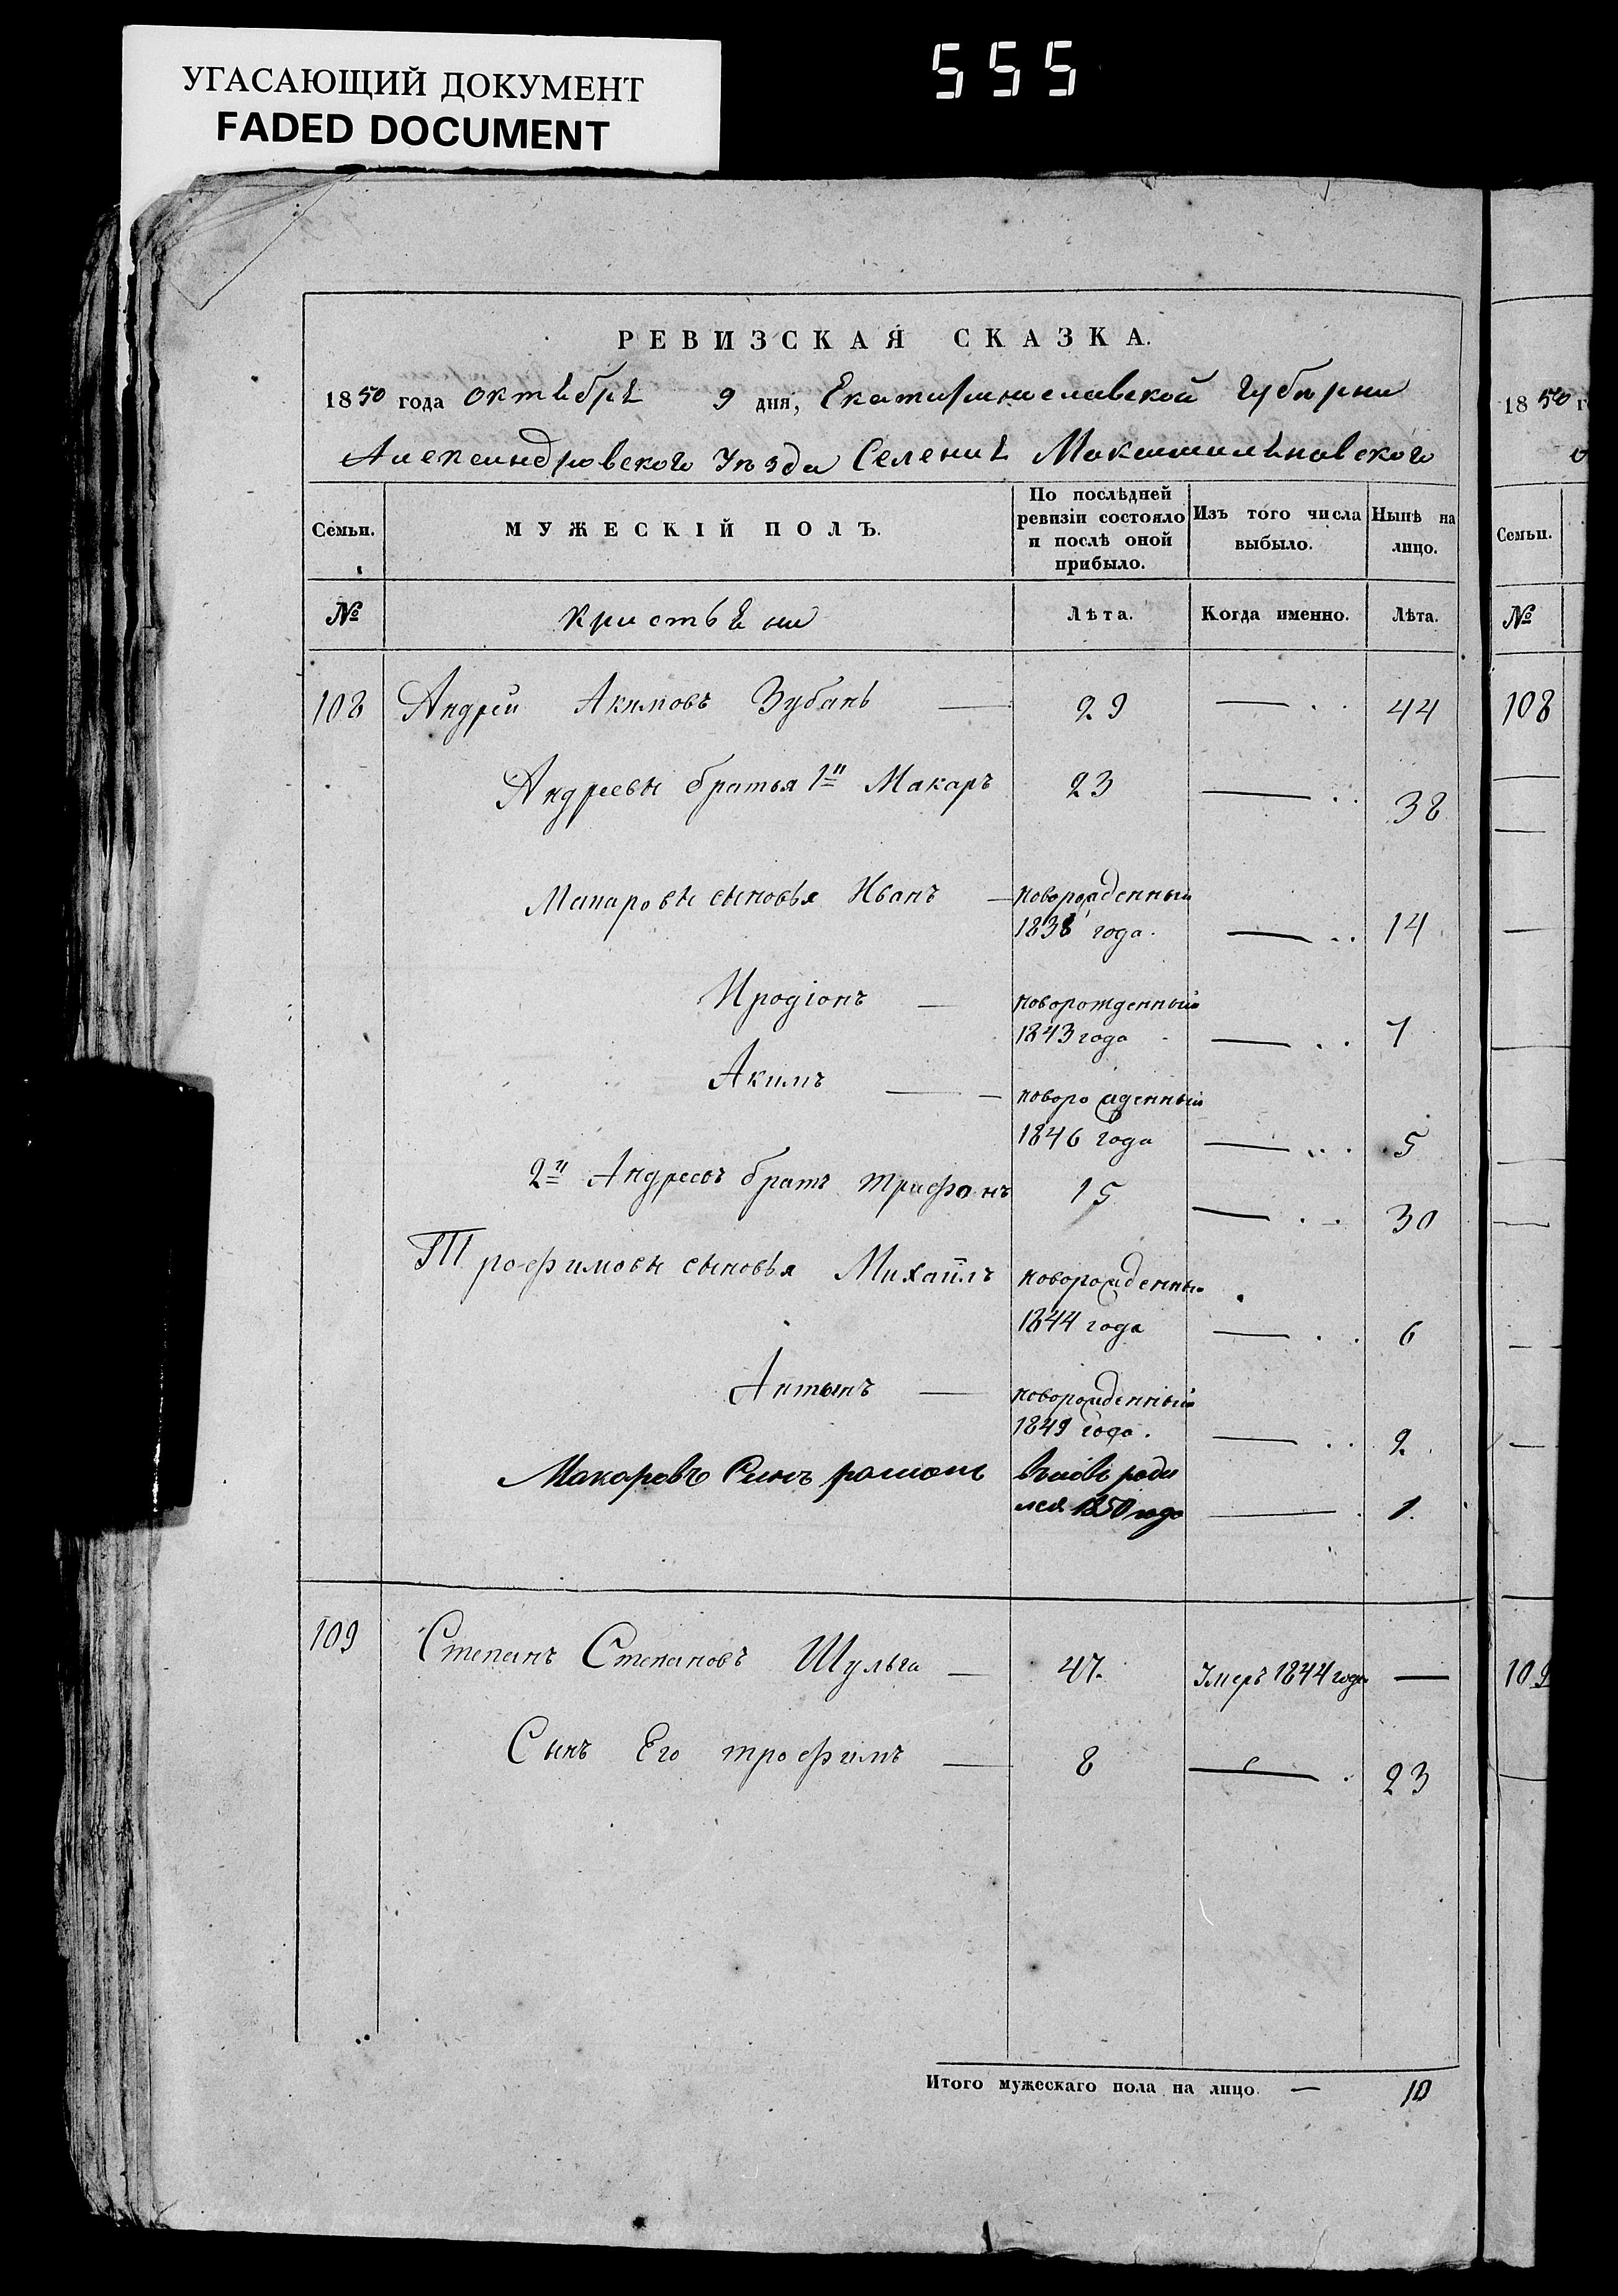 УГАСАЮЩИЙ ДОКУМЕНТ
FADED DOCUMENT
555
РЕВИЗСКАЯ СКАЗКА.
1850 года октября 9 дня, Екатеринославской Губернии
Александровского Уезда Селения Максимиляновского
Семьи. МУЖЕСКІЙ ПОЛЪ. По послѣдней ревизіи состояло и послѣ оной прибыло. Изъ того числа выбыло. Нынѣ на лицо.
№ Кристьяни Лѣта. Когда именно. Лѣта.
108 Андрей Акимовъ Зубань — 29 — . . 44
Андреевы братья 1й Макаръ 23 — . . 38
Макаровы сыновья Иванъ — новорожденный
1838 года. — . . 14
Иродіонъ — новорожденный
1843 года — . . 7
Акимъ — новорожденный
1846 года — . . 5
2й Андреевъ братъ трифонъ 15 — . . 30
Трофимовы сыновья Михаилъ новорожденны
1844 года — . . 6
Антынъ — новорожденный
1849 года. — . . 2
Макаровъ Синъ ромонъ вновь роди
лся 1850 года — . 1.
109 Степанъ Степановъ Шульга — 47. Умеръ 1844 года —
Сынъ Его трофимъ — 8 — . 23
Итого мужескаго пола на лицо. — 10
1850 г
Семьи.
№
108
109